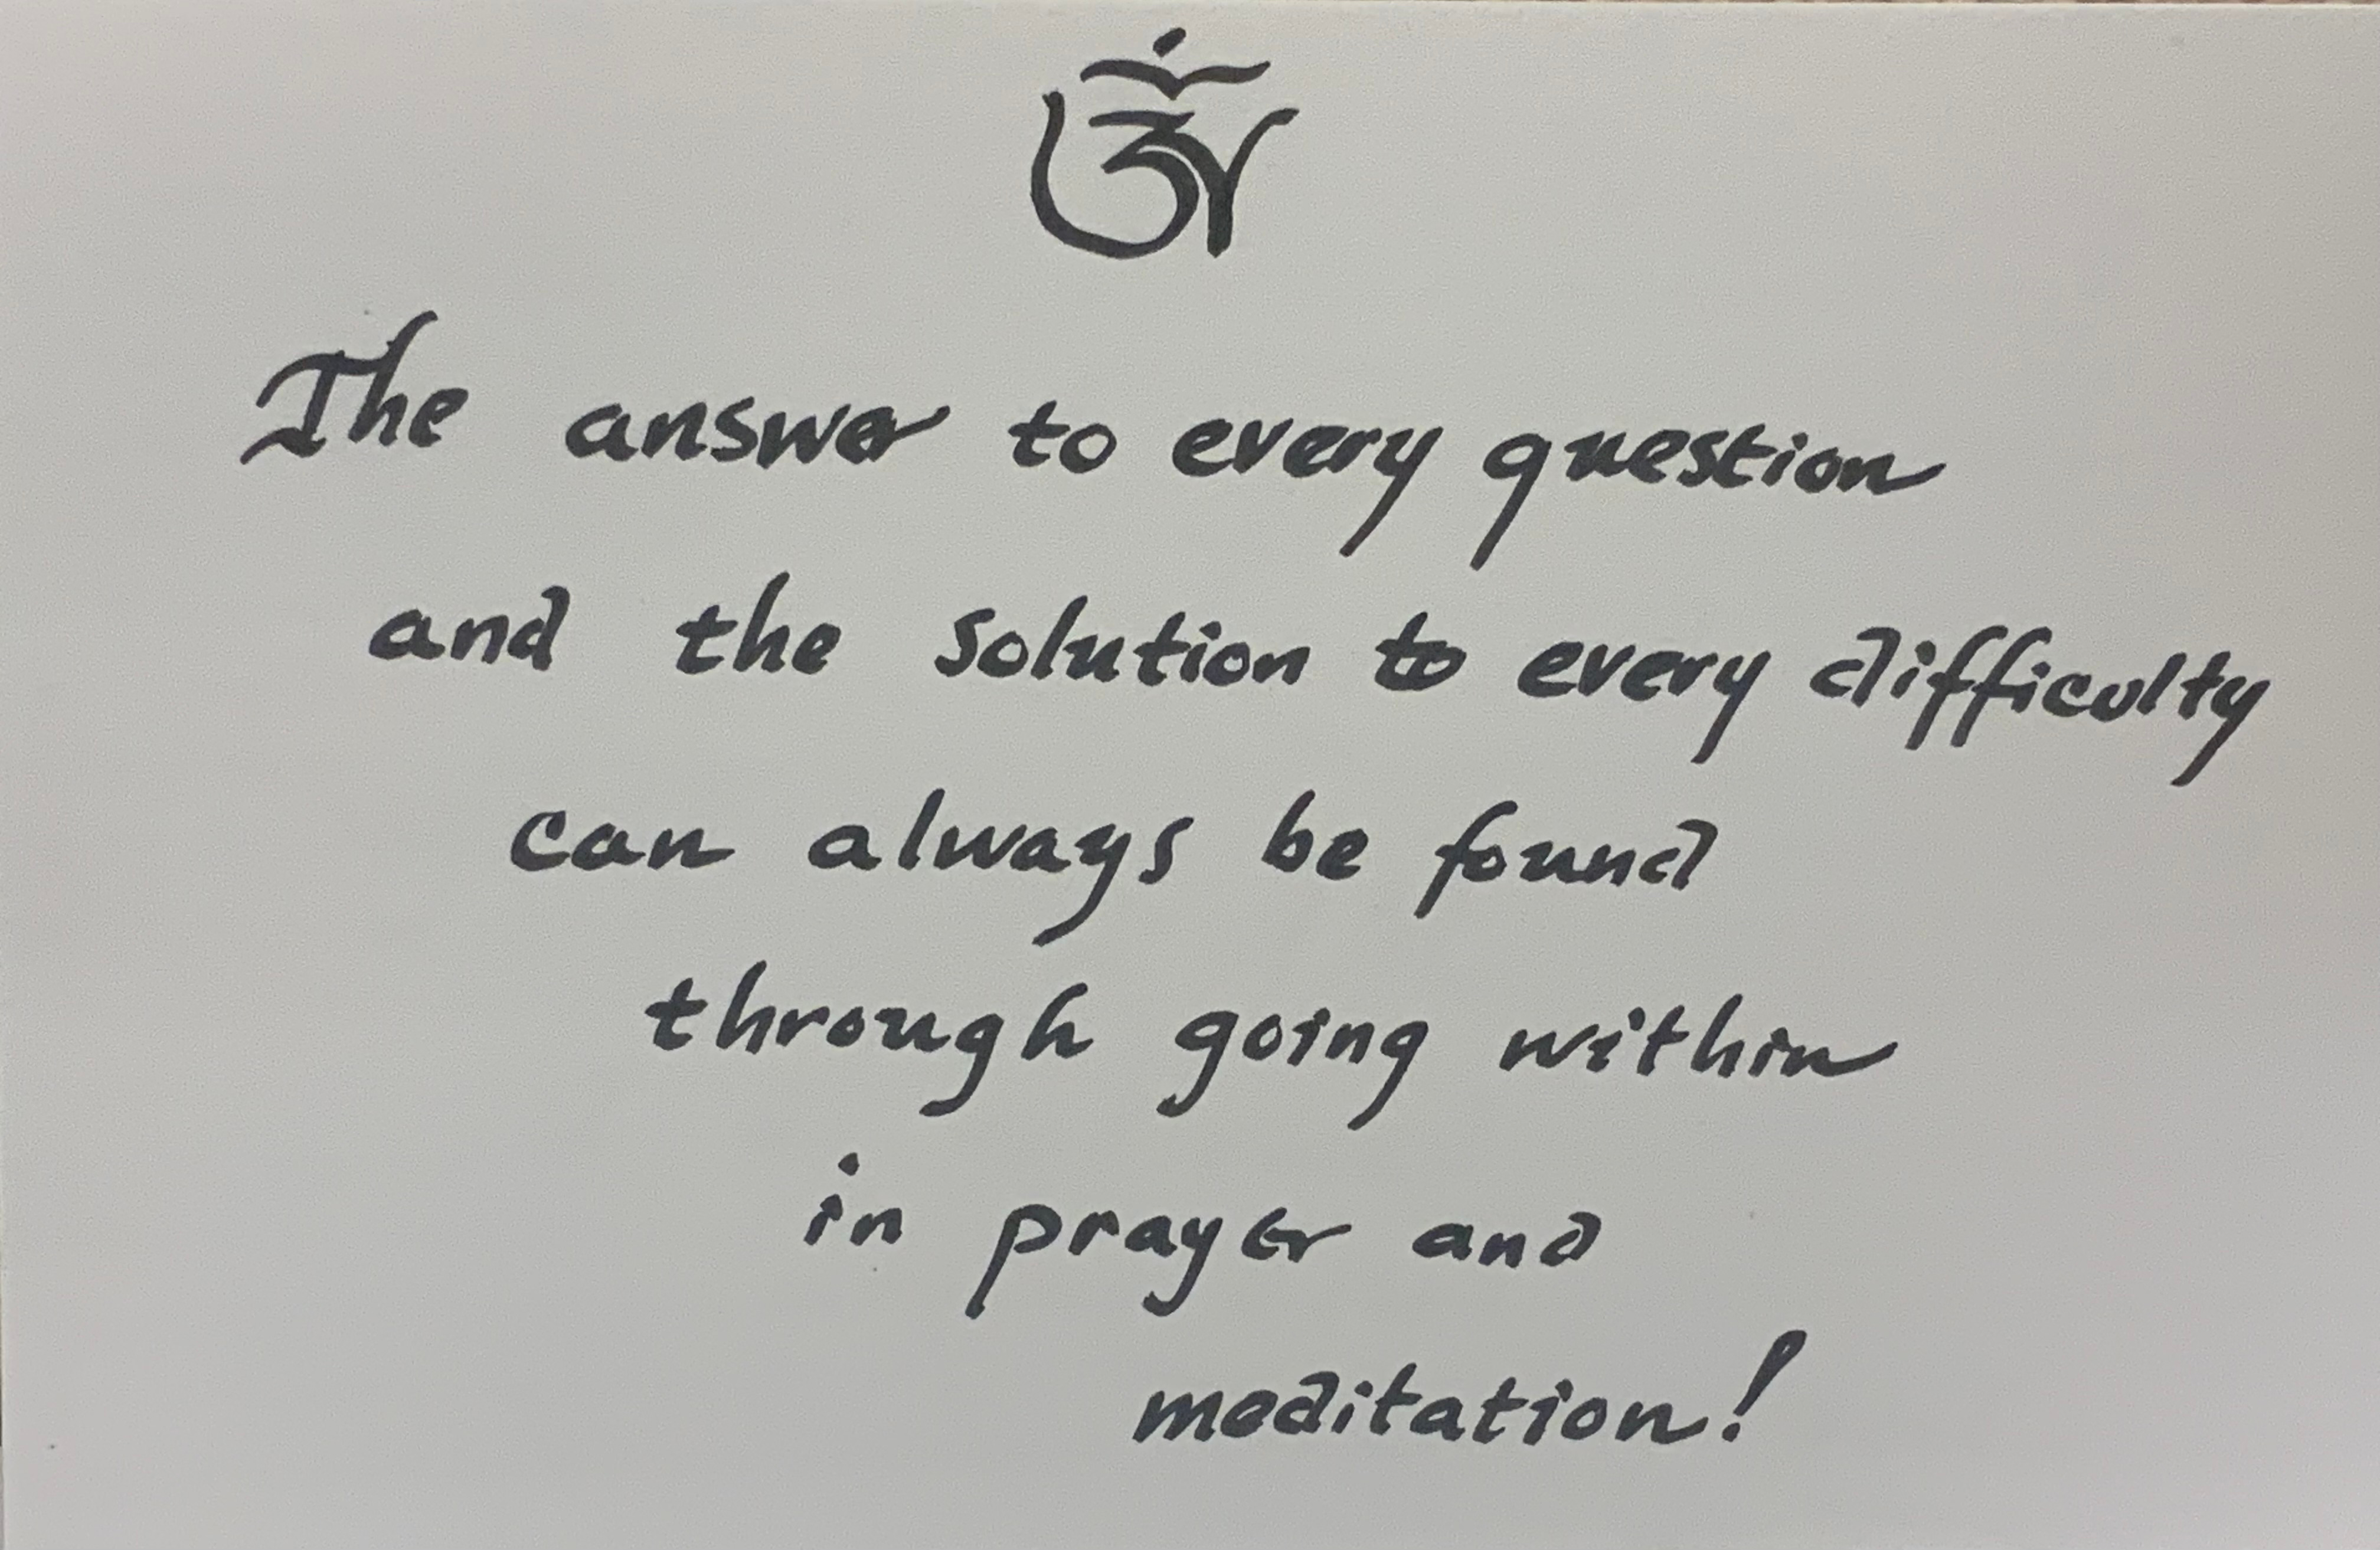 ॐ
The answer to every question
and the solution to every difficulty
can always be found
through going within
in prayer and
meditation!